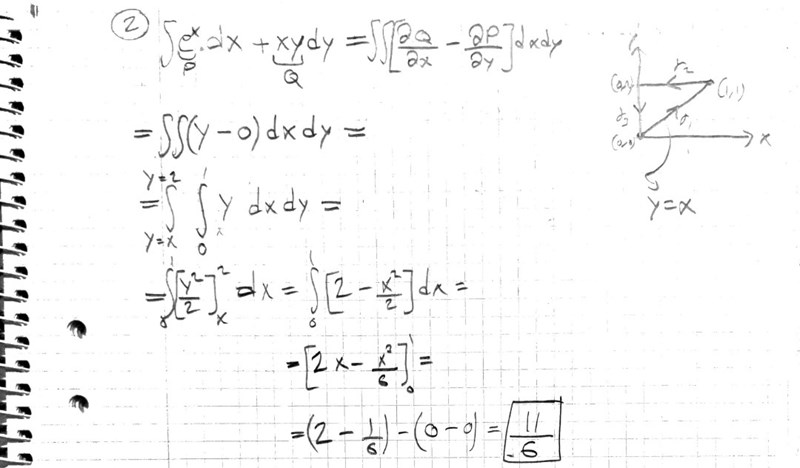 ② ∫ e^x dx + xy dy = ∬[∂Q/∂x − ∂P/∂y] dx dy
P Q
= ∬(y − 0) dx dy =
= ∫_{y=x}^{y=2} ∫_0^1 y dx dy =
= ∫_0^1 [y²/2]_x^2 dx = ∫_0^1 [2 − x²/2] dx =
= [2x − x²/6]_0^1 =
= (2 − 1/6) − (0 − 0) = 11/6
γ2
(1,1)
γ3
γ1
x
y = x